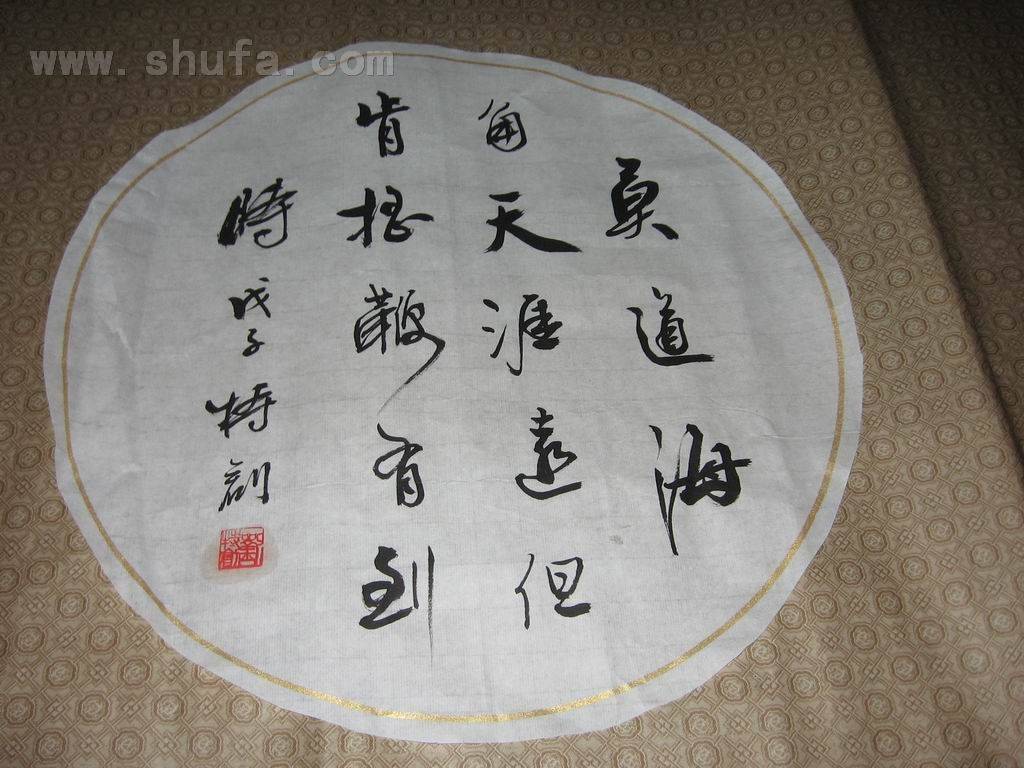 www.shufa.com
莫道海
角天涯遠但
肯摇鞭有到
時戊子特創